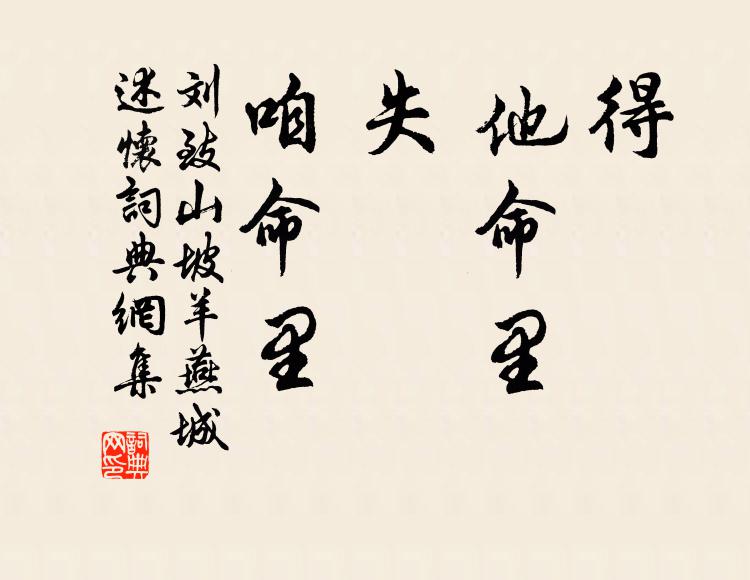 得
他命里
失
咱命里
刘致山坡羊燕城
述懷詞典網集
詞典
网印